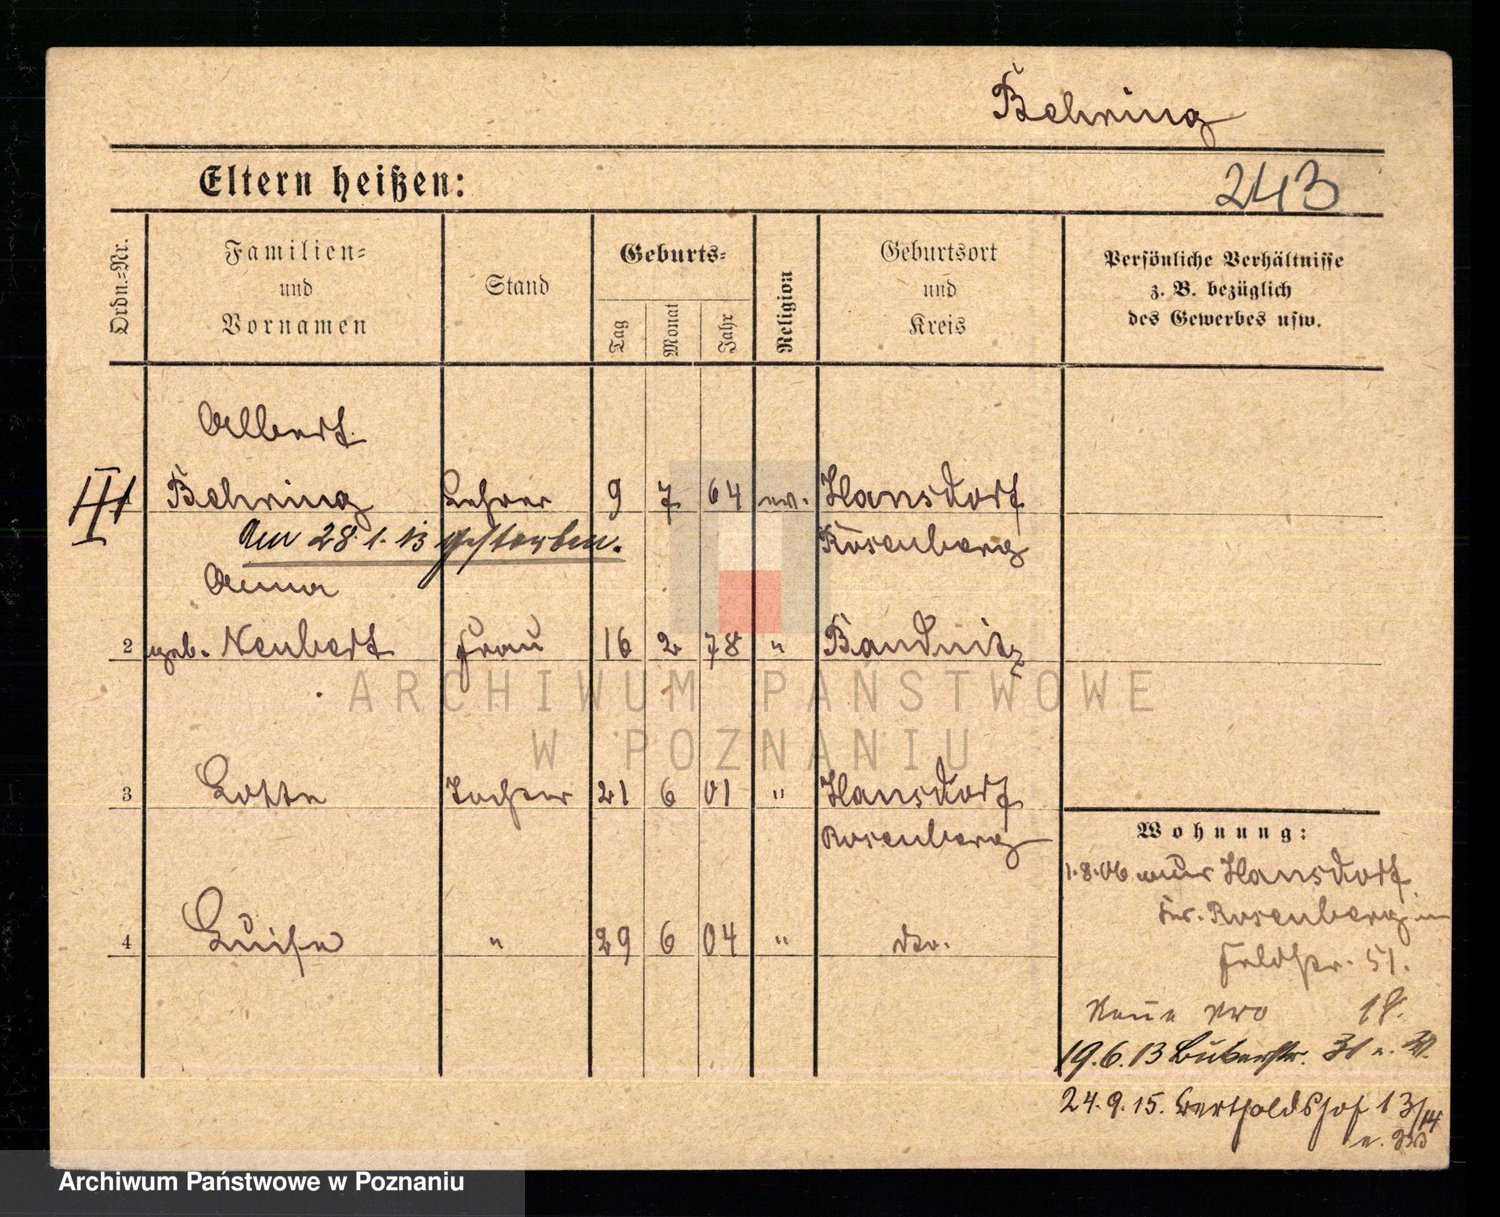 Behring
Eltern heißen:
243
Ordn.-Nr.
Familien-
und
Vornamen
Stand
Geburts-
Tag
Monat
Jahr
Religion
Geburtsort
und
Kreis
Persönliche Verhältnisse
z. B. bezüglich
des Gewerbes usw.
Albert
III Behring Lehrer 9 7 64 ev. Hansdorf
Am 28.1.13 gestorben. Rosenberg
Anna
2 geb. Neubert Frau 16 2 78 " Baudnitz
ARCHIWUM PAŃSTWOWE
W POZNANIU
3 Lotte Tochter 21 6 01 " Hansdorf
Rosenberg
4 Luise " 29 6 04 " do.
Wohnung:
1.8.06 aus Hansdorf
Kr. Rosenberg in
Feldstr. 51.
Neue 18.
19.6.13
24.9.15. Bertholdshof 13/14
Archiwum Państwowe w Poznaniu